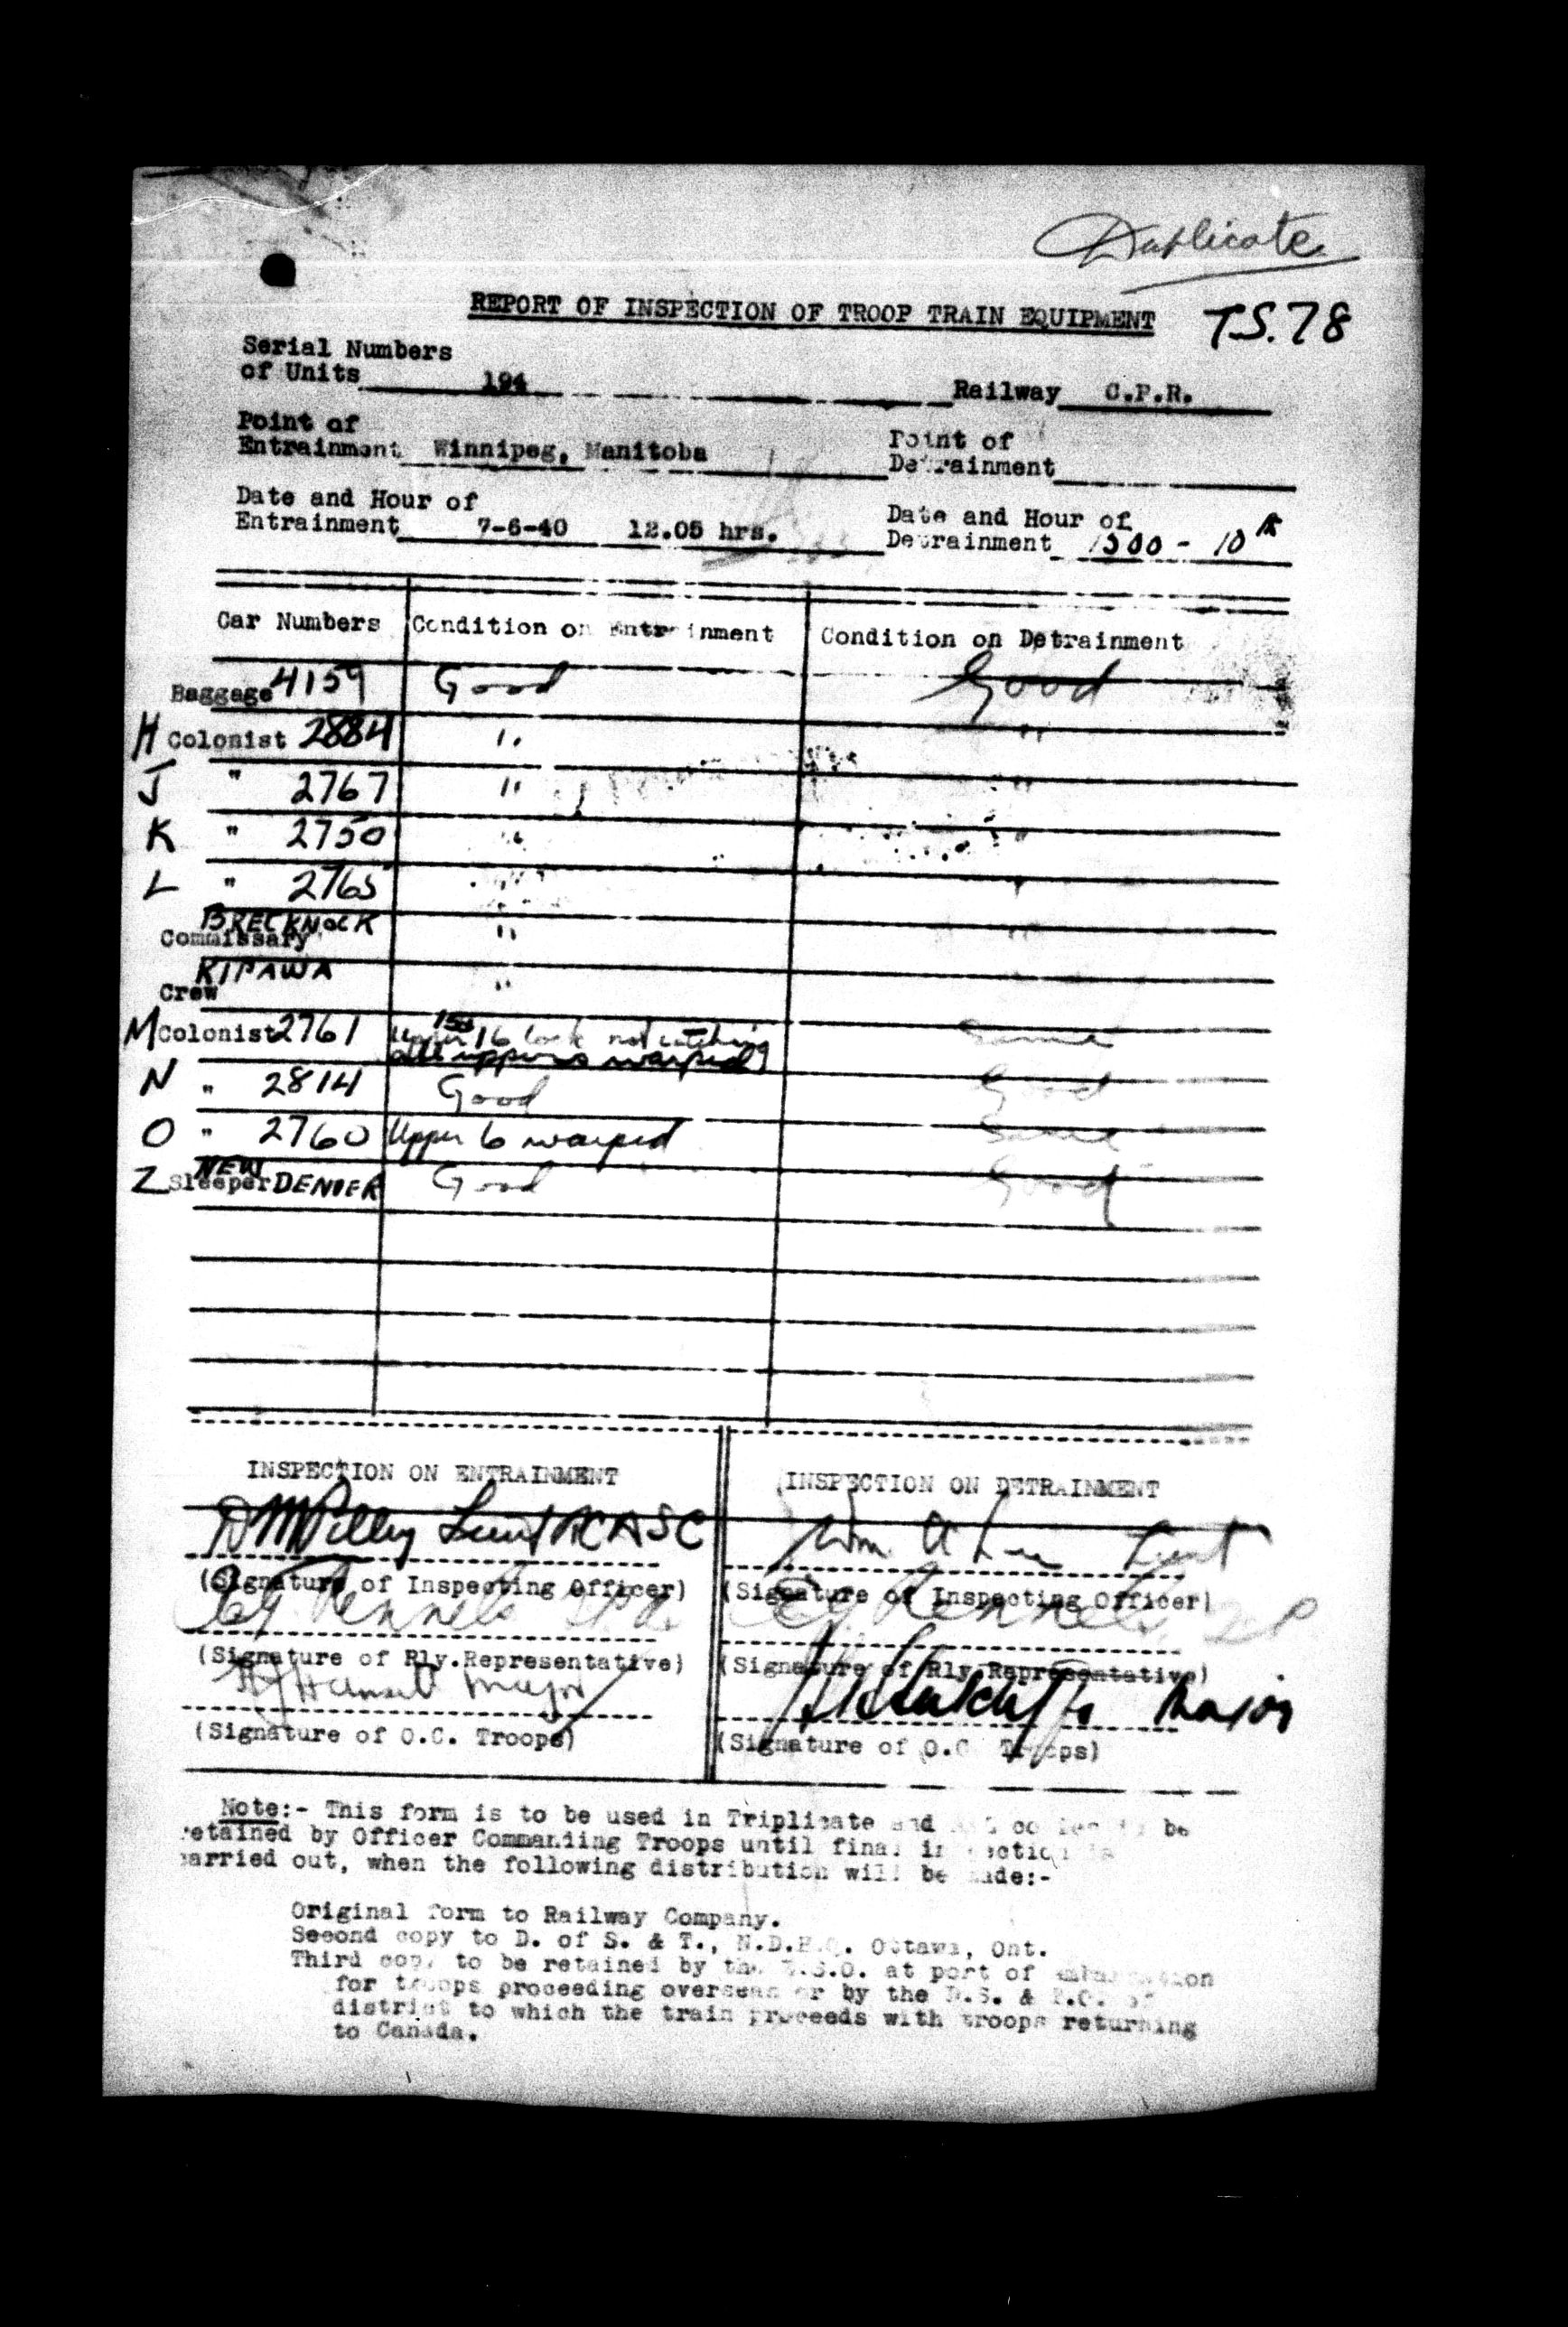 Duplicate
REPORT OF INSPECTION OF TROOP TRAIN EQUIPMENT T.S.78
Serial Numbers
of Units 194 Railway C.P.R.
Point of Point of
Entrainment Winnipeg, Manitoba Detrainment
Date and Hour of Date and Hour of
Entrainment 7-6-40 12.05 hrs. Detrainment 1500 - 10
Car Numbers Condition on Entrainment Condition on Detrainment
Baggage 4159 Good Good
H Colonist 2884 " "
J " 2767 " "
K " 2750 " "
L " 2765 "
BRECKNOCK
Commissary " "
KIPAWA
Crew "
M Colonist 2761 Upper 16 lock not catching Same
all uppers warped
N " 2814 Good Good
O " 2760 Upper 6 warped Same
NEW
Z Sleeper DENVER Good Good
INSPECTION ON ENTRAINMENT INSPECTION ON DETRAINMENT
Lieut RCASC Wm Lieut
(Signature of Inspecting Officer) (Signature of Inspecting Officer)
(Signature of Rly.Representative) (Signature of Rly.Representative)
Major Major
(Signature of O.C. Troops) (Signature of O.C. Troops)
Note:- This form is to be used in Triplicate and be
retained by Officer Commanding Troops until final inspection is
carried out, when the following distribution will be made:-
Original form to Railway Company.
Second copy to D. of S. & T., N.D.H.Q. Ottawa, Ont.
Third copy to be retained by the at port of embarkation
for troops proceeding overseas or by the D.S. & of
district to which the train proceeds with troops returning
to Canada.